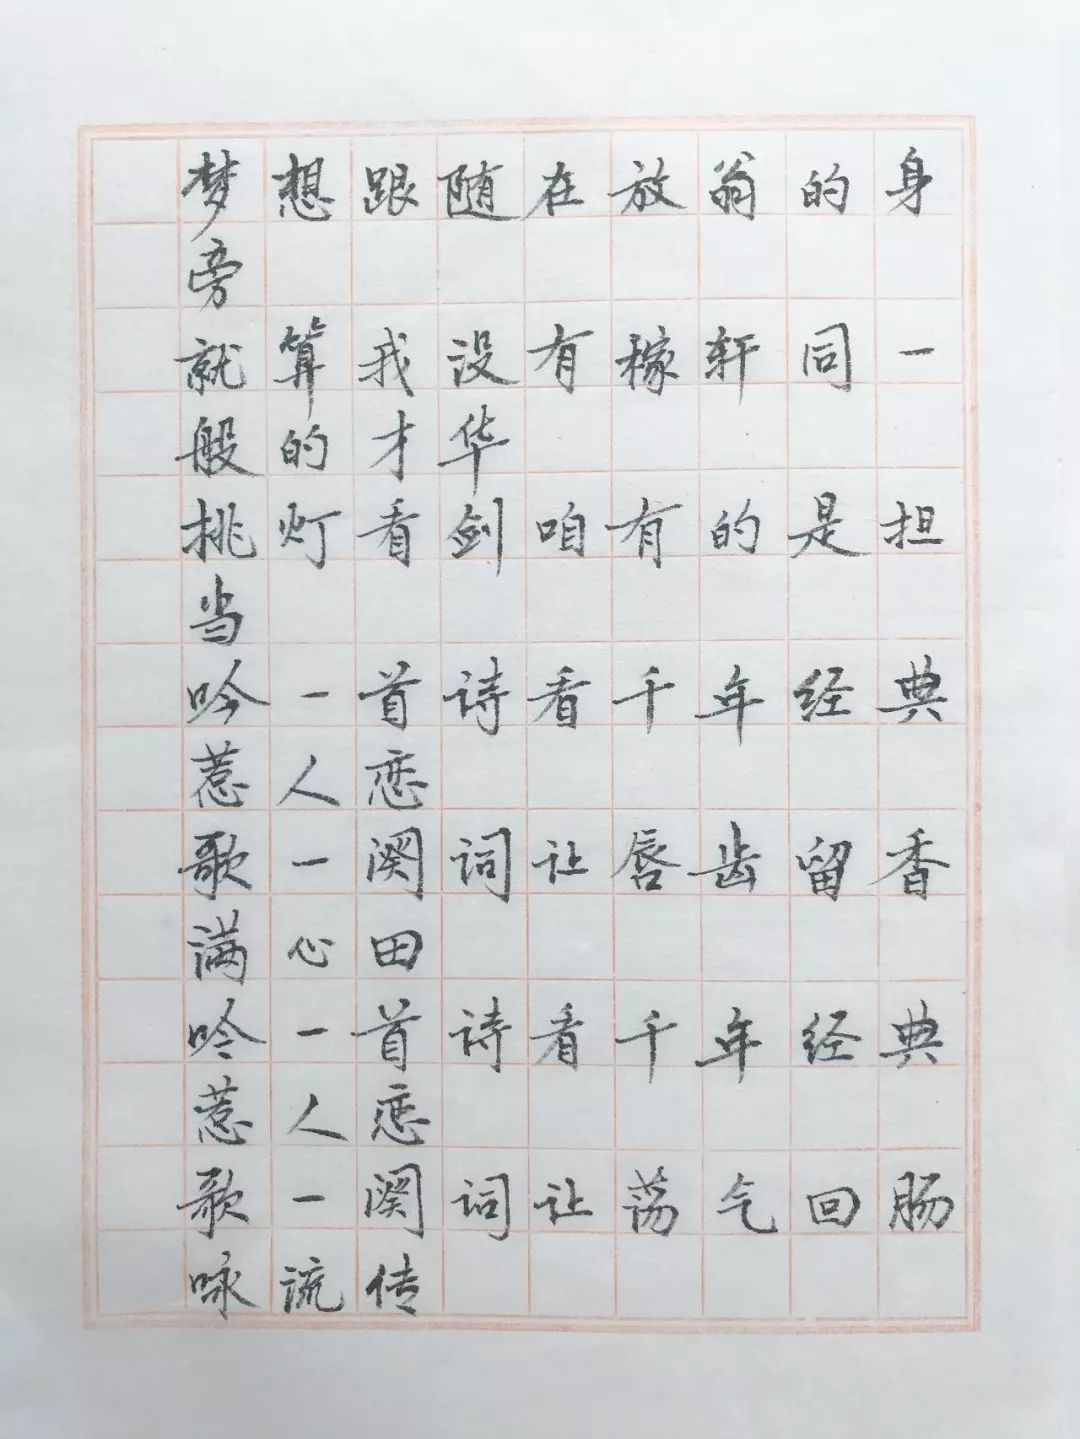 梦想跟随在放翁的身
旁
就算我没有稼轩同一
般的才华
挑灯看剑咱有的是担
当
吟一首诗看千年经典
惹人恋
歌一阕词让唇齿留香
满心田
吟一首诗看千年经典
惹人恋
歌一阕词让荡气回肠
咏流传